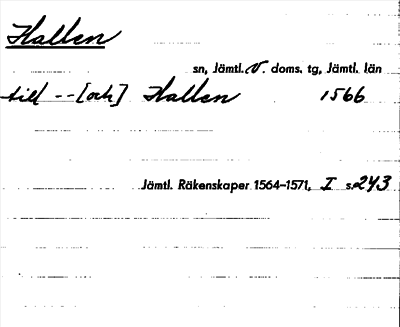 Hallen
sn, Jämtl. V. doms. tg, Jämtl. län
till -- [och] Hallen 1566
Jämtl. Räkenskaper 1564-1571, I s. 243